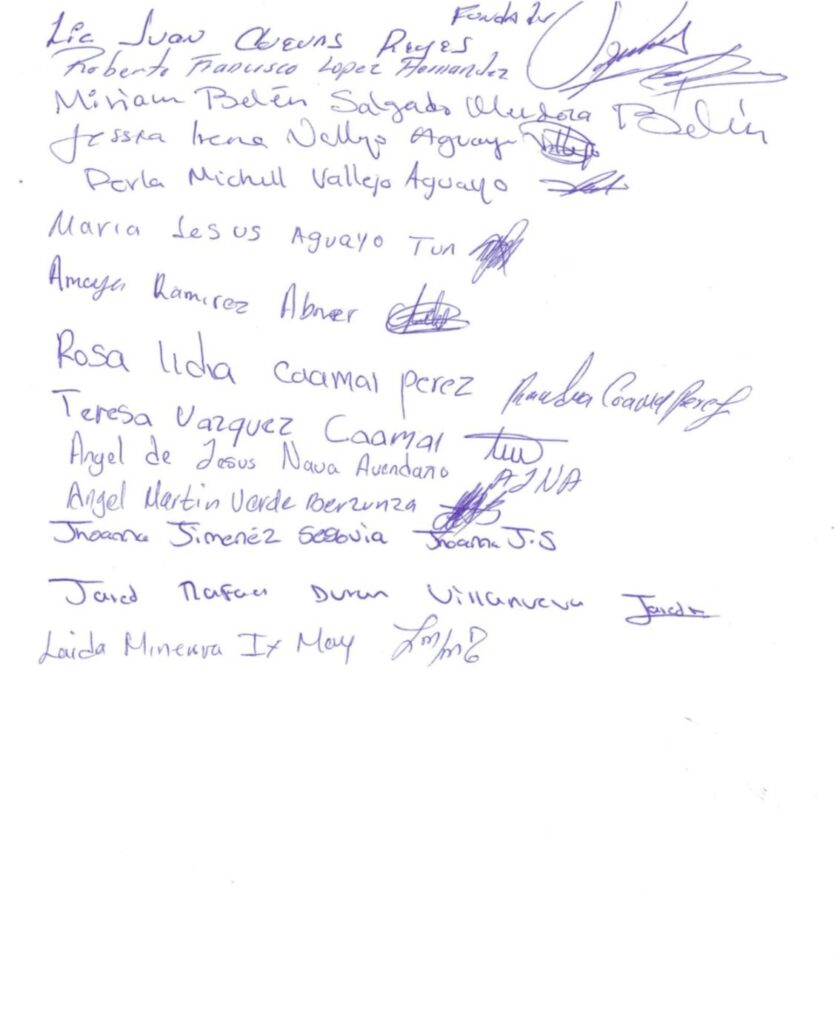 Lic Juan Cuevas Reyes Fundador
Roberto Francisco Lopez Hernandez
Miriam Belén Salgado Belén
Irene Vallejo Aguayo Vallejo
Perla Michell Vallejo Aguayo
Maria Jesus Aguayo Tun
Amaya Ramirez Abner
Rosa lidia Caamal perez
Teresa Vazquez Caamal
Angel de Jesus Nava Avendano AJNA
Angel Martin Verde Berzunza
Jhoanna Jimenéz Segovia Jhoanna J.S
Jared Rafael Duran Villanueva Jared
Laida Minerva Ix May